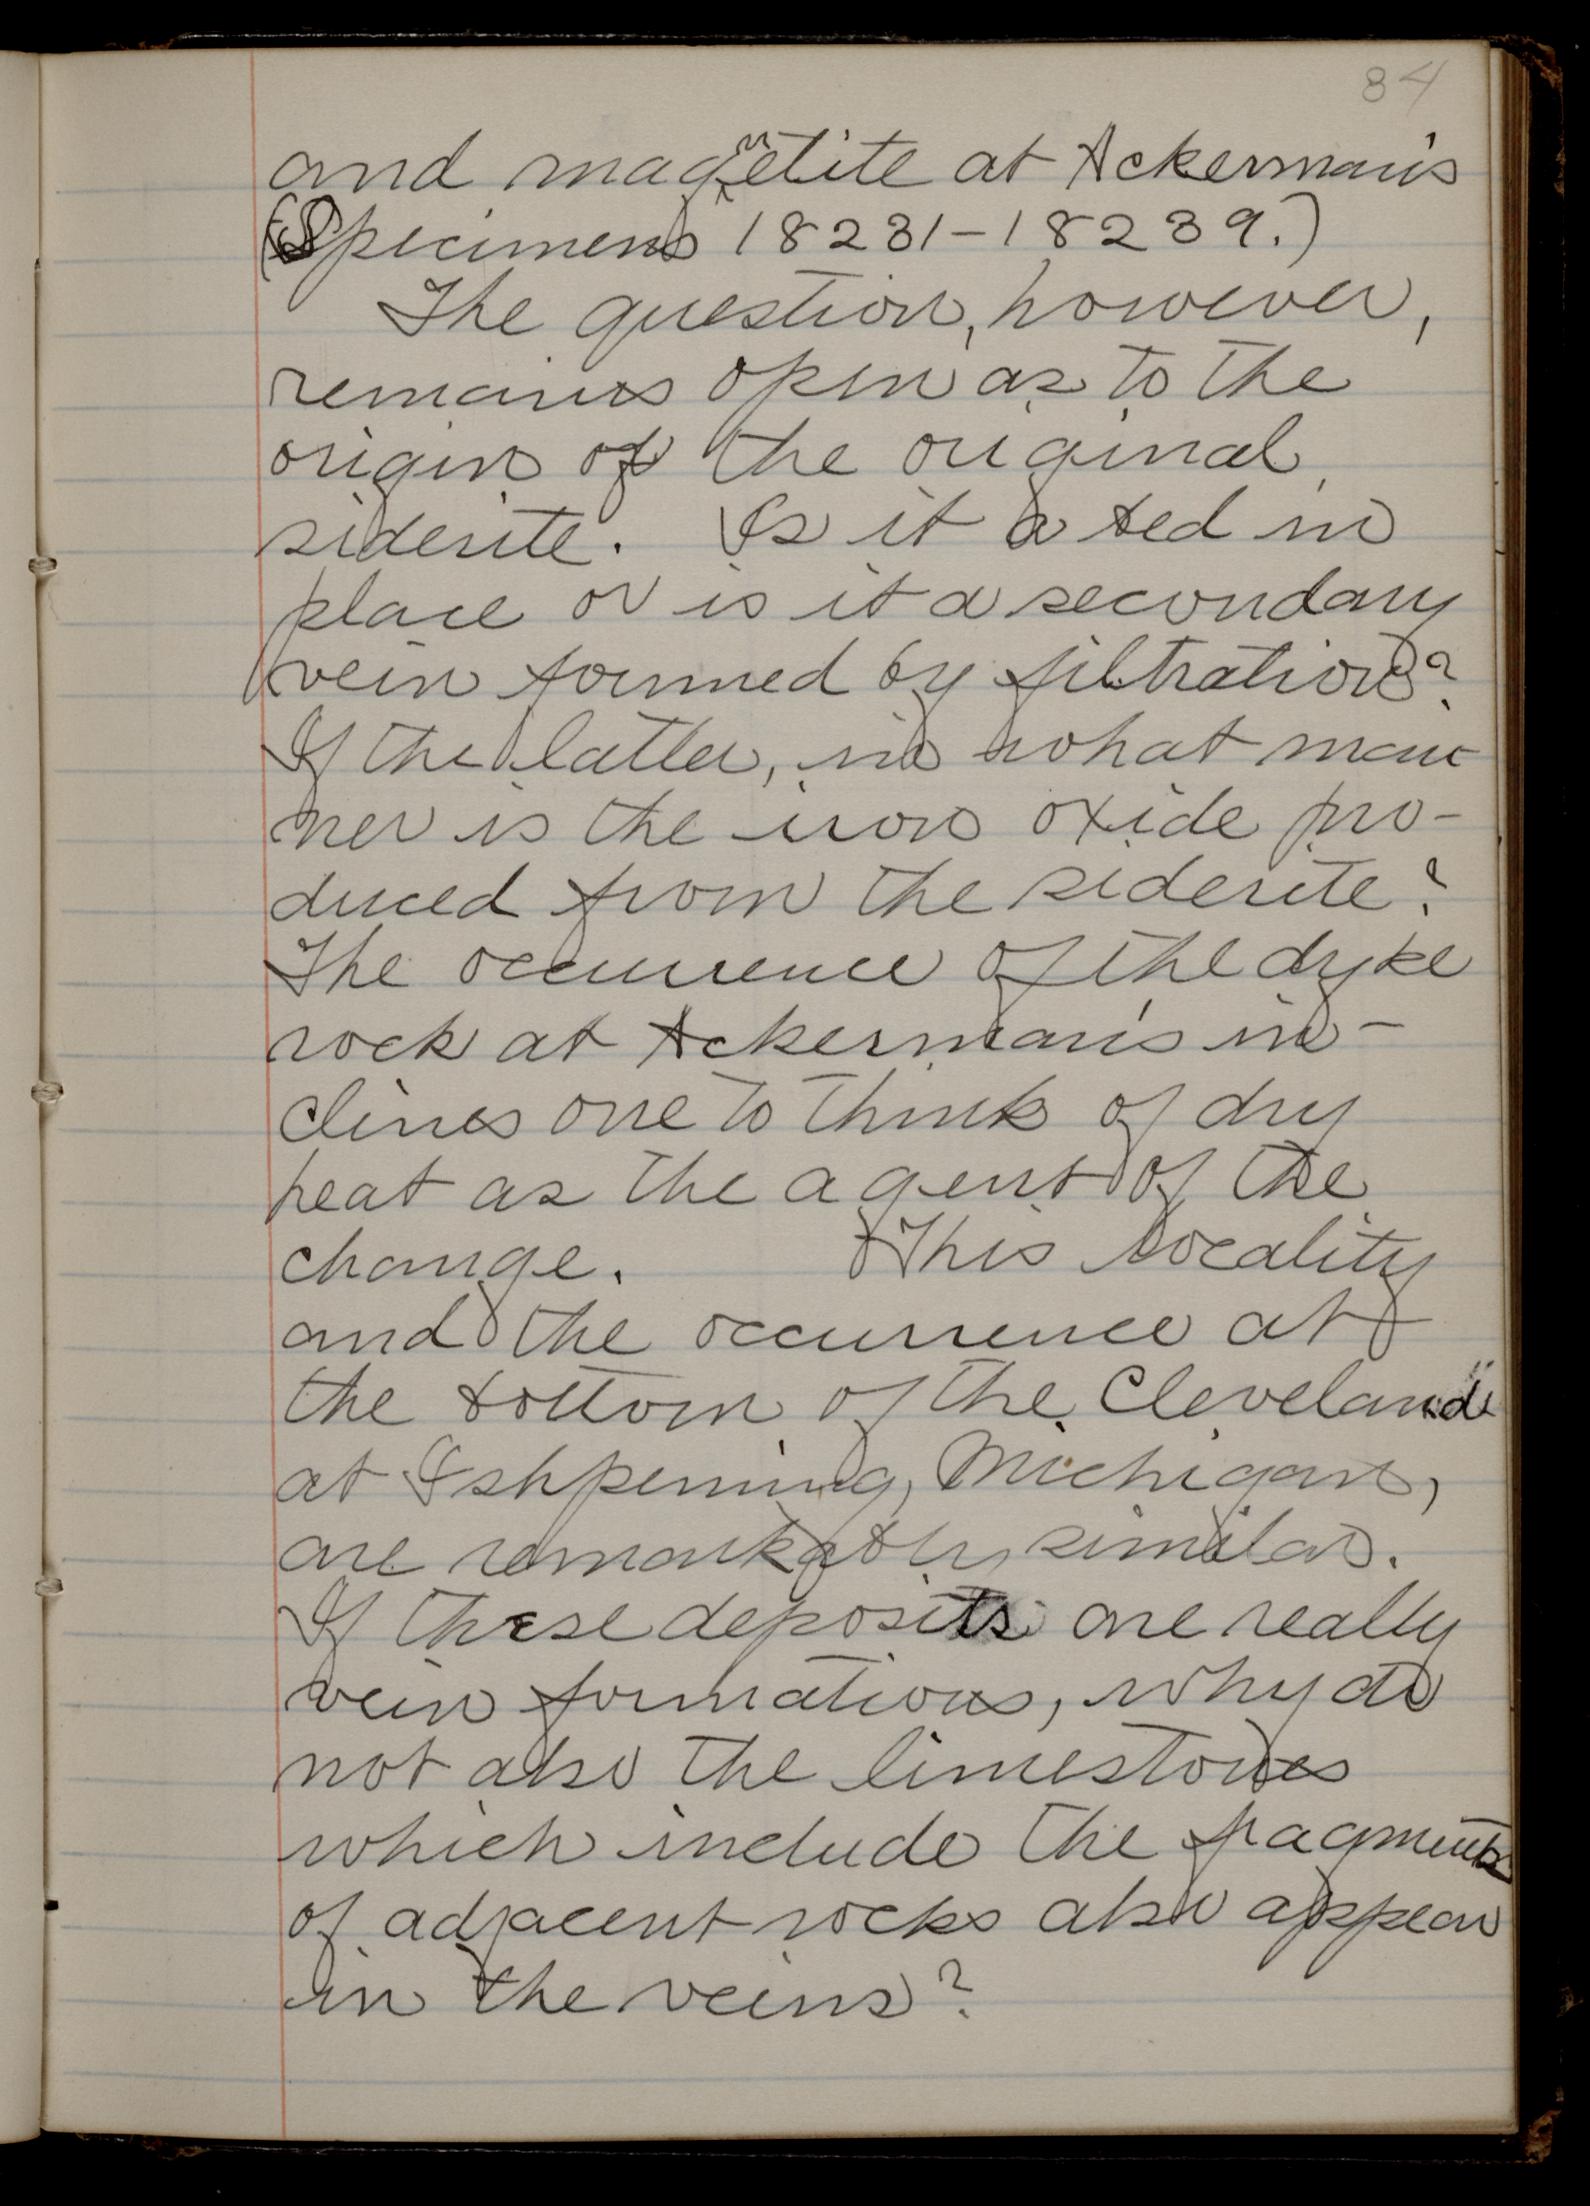 84
and magnetite at Ackerman's
(Specimens 18231-18239.)
The question, however,
remains open as to the
origin of the original
siderite. Is it a bed in
place or is it a secondary
vein formed by filtration?
If the latter, in what man-
ner is the iron oxide pro-
duced from the siderite?
The occurrence of the dyke
rock at Ackerman's in-
clines one to think of dry
heat as the agent of the
change. This locality
and the occurrence at
the bottom of the Cleveland
at Ishpeming, Michigan,
are remarkably similar.
If these deposits are really
vein formations, why do
not also the limestones
which include the fragments
of adjacent rocks also appear
in the veins?